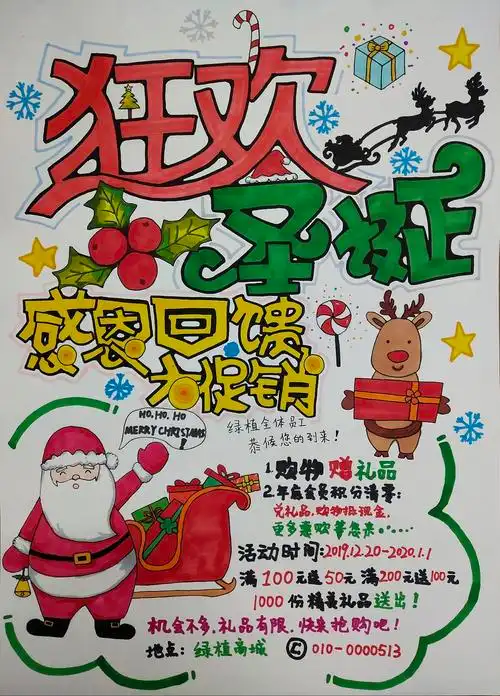 狂欢
圣诞
感恩回馈
大促销
HO. HO. HO
MERRY CHRISTMAS!
绿植全体员工
恭候您的到来!
1.购物赠礼品
2.年底会员积分清零:
兑礼品,购物抵现金,
更多惠欢等您来······
活动时间:2019.12.20-2020.1.1
满100元送50元 满200元送100元
1000份精美礼品送出!
机会不多,礼品有限,快来抢购吧!
地点: 绿植商城 010-0000513